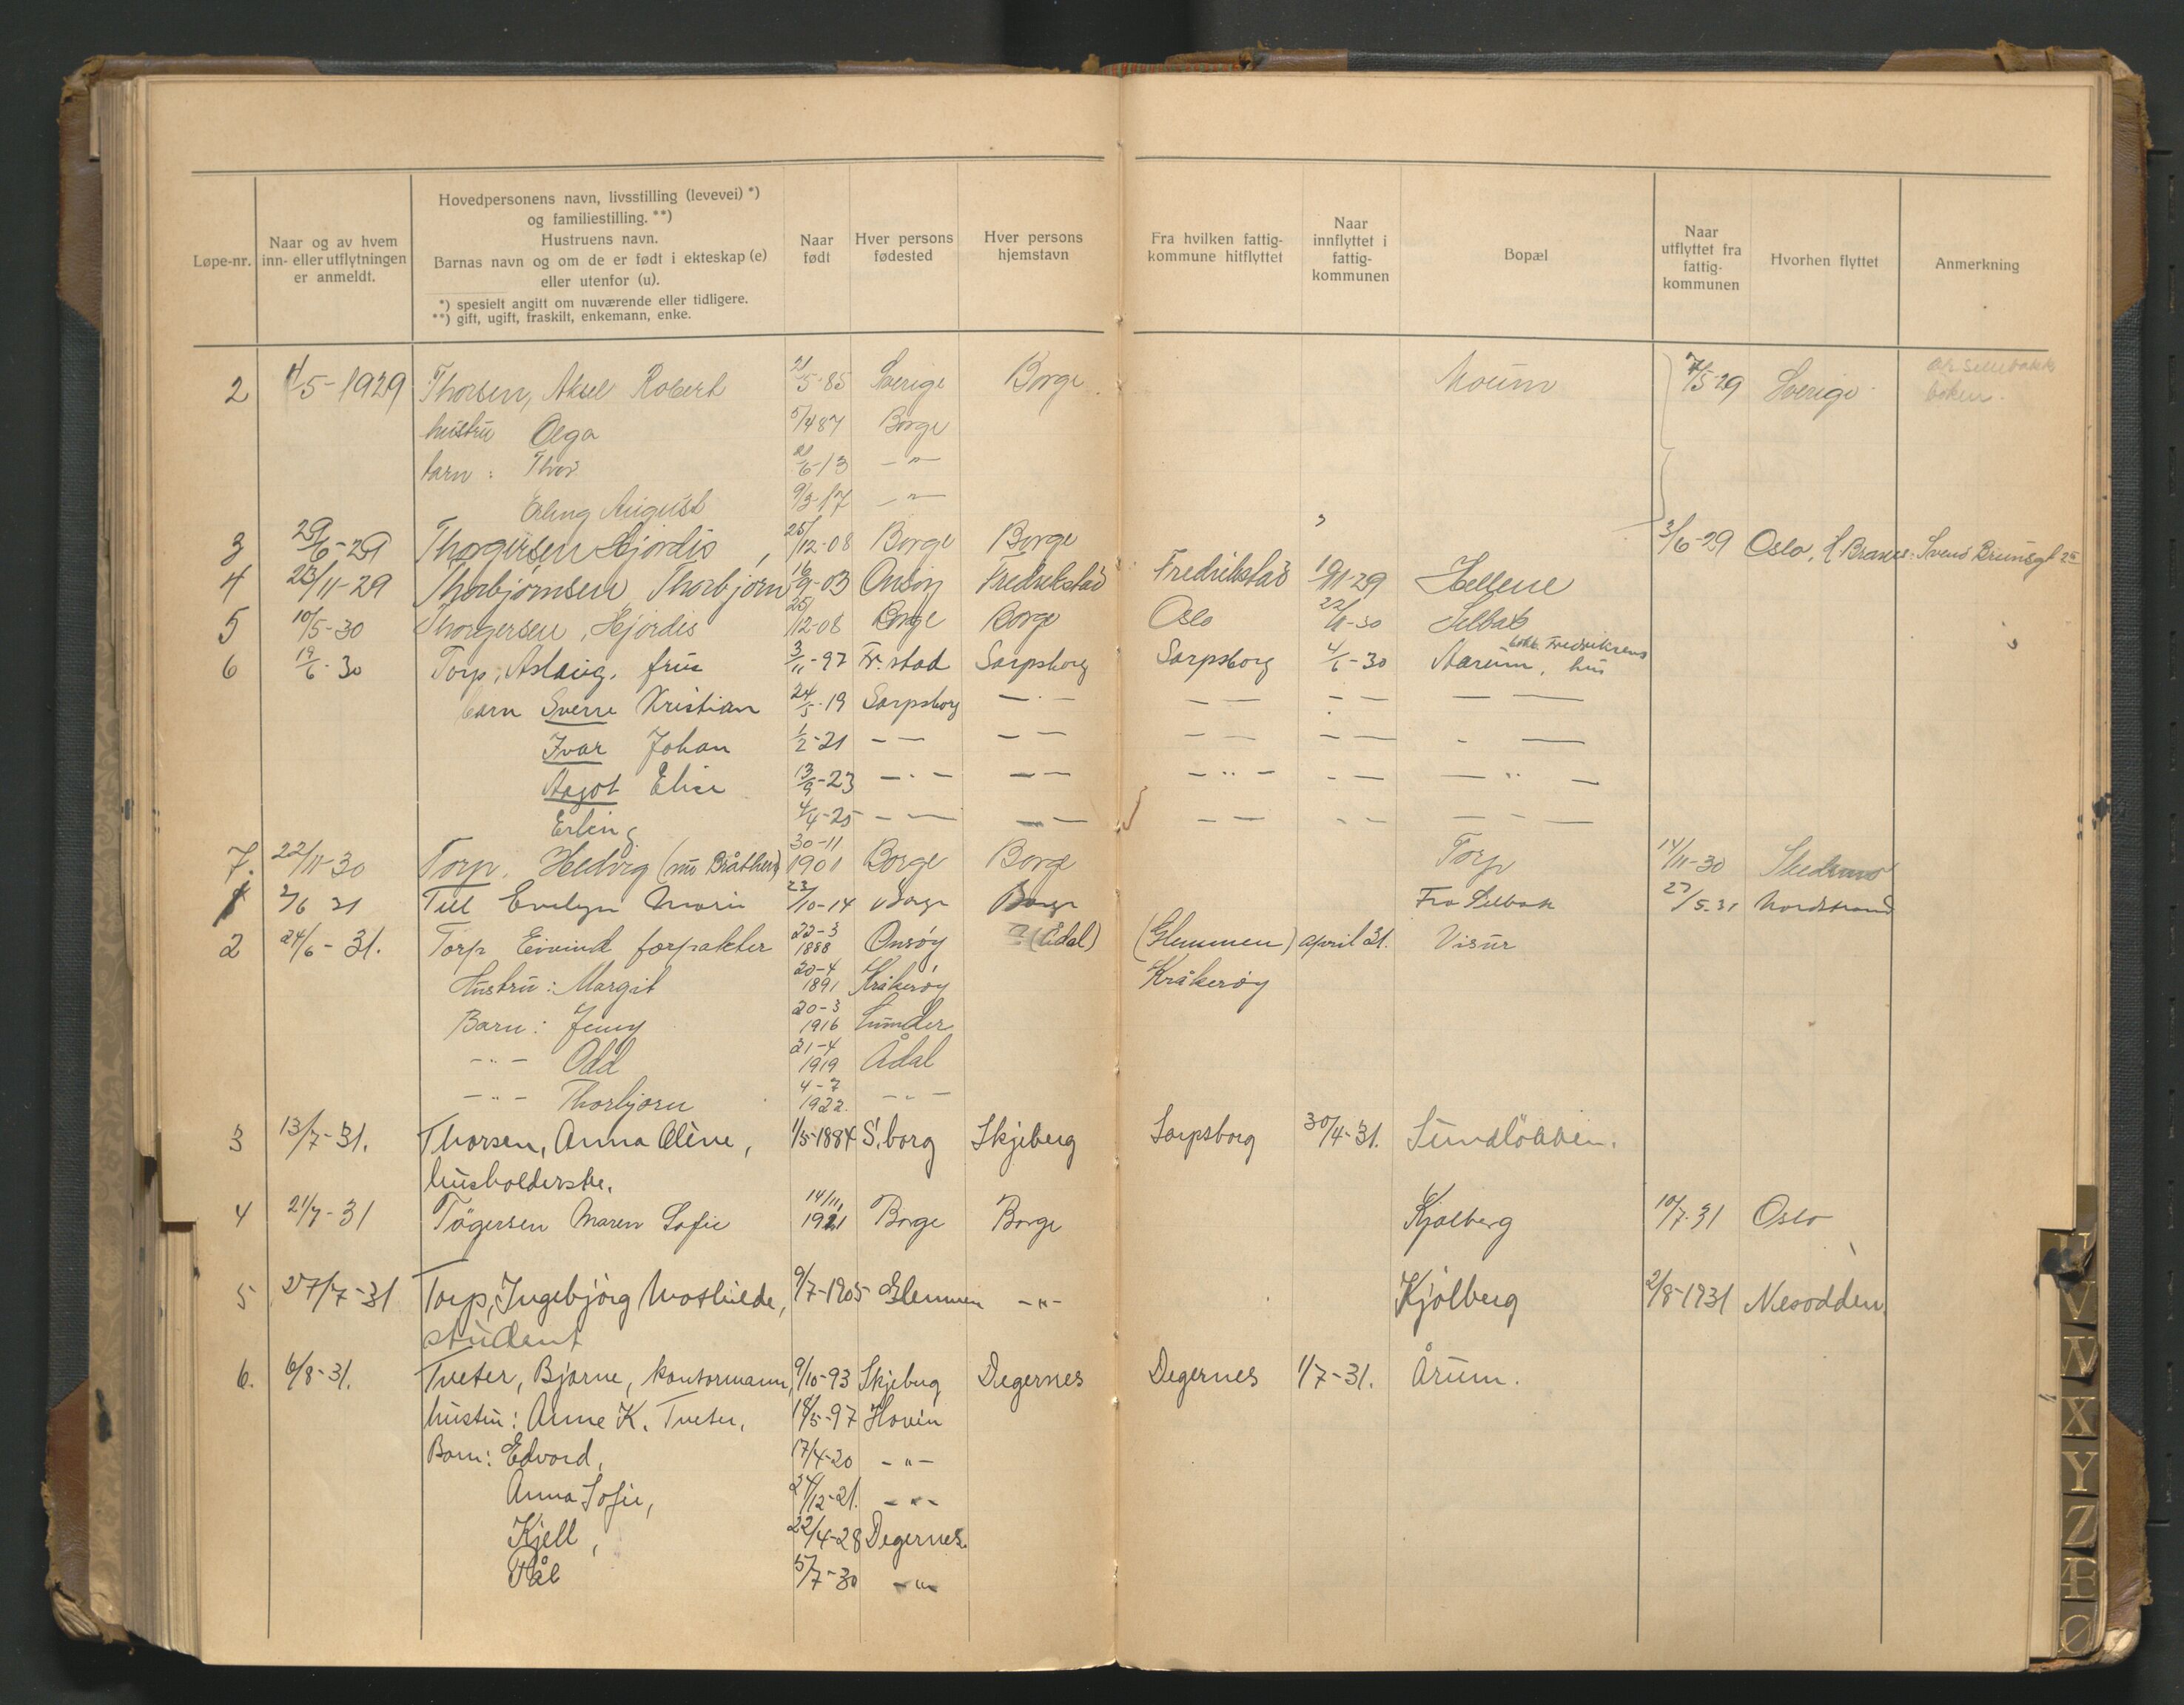 Løpe-nr.
Naar og av hvem
inn- eller utflytningen
er anmeldt.
Hovedpersonens navn, livsstilling (levevei) *)
og familiestilling. **)
Hustruens navn.
Barnas navn og om de er født i ekteskap (e)
eller utenfor (u).
*) spesielt angitt om nuværende eller tidligere.
**) gift, ugift, fraskilt, enkemann, enke.
Naar
født
Hver persons
fødested
Hver persons
hjemstavn
Fra hvilken fattig-
kommune hitflyttet
Naar
innflyttet i
fattig-
kommunen
Bopæl
Naar
utflyttet fra
fattig-
kommunen
Hvorhen flyttet
Anmerkning
2 4/5-1929 Thorsen, Aksel Robert 21/5-85 Sverige Borge Moum 7/5-29 Sverige
boken.
hustru Olga 5/4 87 Borge
barn: Thor 6-13 -"-
Erling August 9/3-17 -"-
3 29/6-29 Thorgersen Hjördis, 25/12-08 Borge Borge 3/6-29 Oslo, Svend Brunsgt
4 23/11-29 Thorbjørnsen Thorbjørn 16/9-03 Onsöy Fredrikstad Fredrikstad 19/11-29 Hellene
5 10/5-30 Thorgersen, Hjördis 25/12-08 Borge Borge Oslo 22/ -30 Selbak
6 19/6-30 Torp, Aslaug, frue 3/11-97 Fr.stad Sarpsborg Sarpsborg 4/6-30 Aarum, Fredriksens hus
barn Sverre Kristian 24/5-19 Sarpsborg — · — — — — — — —
Ivar Johan 1/2-21 — — — — — — — — - —
Aagot Elise 13/9-23 — · — — — — " — - — — " —
Erling 4/4-25 — — — — — — - — — - —
7. 22/11-30 Torp, Hedvig (nu Bråthen) 30-11 1901 Borge Borge Torp 14/11-30 Skedsmo
1 2/6 31 Tell Evelyn Marie 23/10-14 Borge Borge Fra Selbak 27/5-31 Nordstrand
2 24/6-31. Torp Eivind forpakter 22-3 1888 Onsøy ? (Ådal) (Glemmen) april 31. Visur
Hustru: Margit 20-4 1891 Kråkerøy Kråkerøy
Barn: Jenny 20-3 1916 Lunder
-"- Odd 21-4 1919 Ådal
-"- Thorbjørn 4-7 1922. -"-
3 13/7-31. Thorsen, Anna Oline, 1/5-1884 S.borg Skjeberg Sarpsborg 30/4-31. Sundløkken.
husholderske.
4 21/7-31 Tögersen Maren Sofie 14/11 1921 Borge Borge Kjølberg 10/7-31 Oslo
5 27/7-31 Torp, Ingebjörg Mathilde, 9/7-1905 Glemmen -"- Kjölberg 2/8-1931 Nesodden
student
6. 6/8-31. Tveter, Bjarne, kontormann, 9/10-93 Skjeberg Degernes Degernes 1/7-31. Årum.
hustru: Anne K. Tveter, 18/5-97 Hovin
Barn: Edvard, 17/4-20 -"-
Anna Sofie, 24/12-21. -"-
Kjell, 22/4-28 Degernes.
Pål 5/7-30 -"-
V
W
X
Y
Z
Æ
Ø